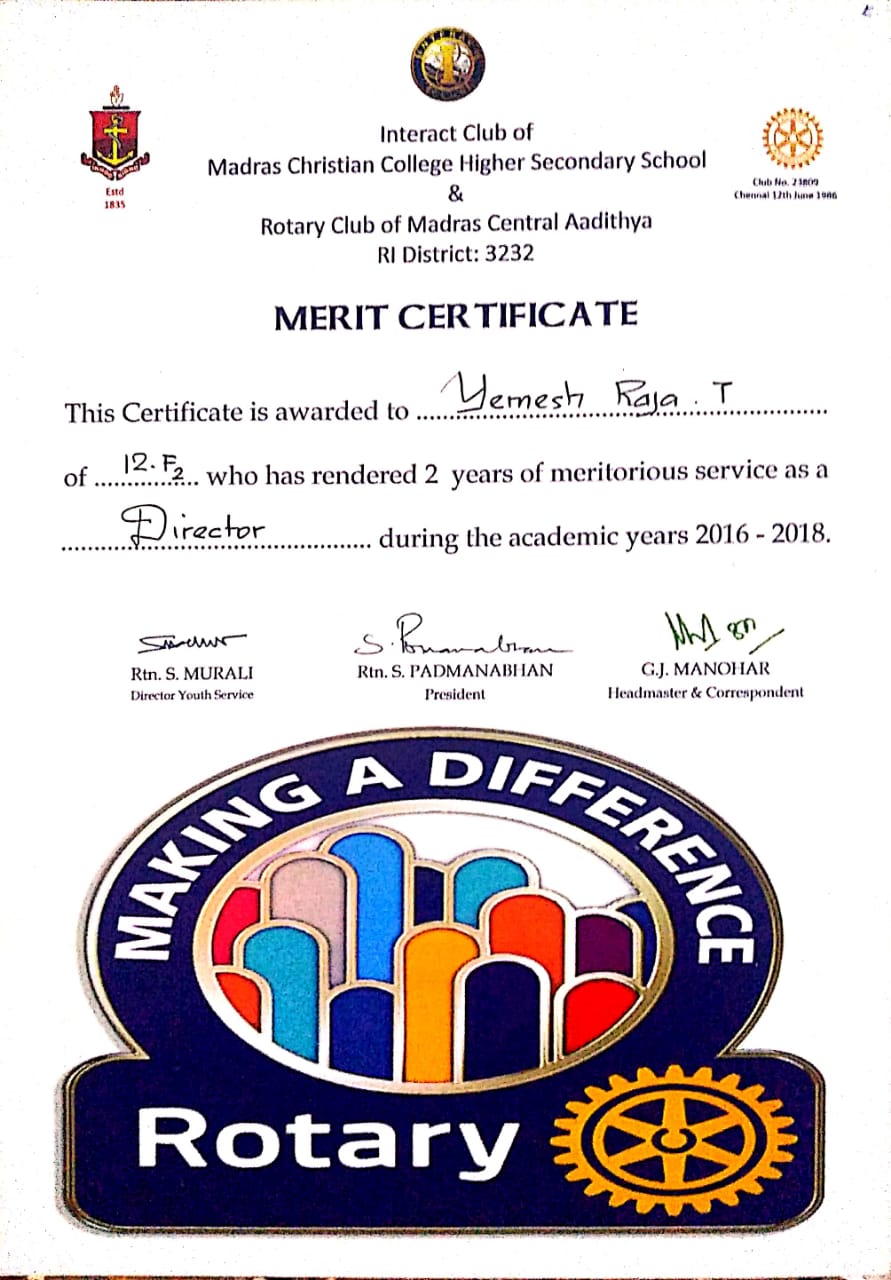 Interact Club of
Madras Christian College Higher Secondary School
&
Rotary Club of Madras Central Aadithya
RI District: 3232
Estd
1835
Club No. 23809
Chennai 12th June 1986
MERIT CERTIFICATE
This Certificate is awarded to Yemesh Raja . T
of 12. F2 who has rendered 2 years of meritorious service as a
Director during the academic years 2016 - 2018.
Rtn. S. MURALI
Director Youth Service
S. Padmanabhan
Rtn. S. PADMANABHAN
President
G.J. MANOHAR
Headmaster & Correspondent
MAKING A DIFFERENCE
Rotary